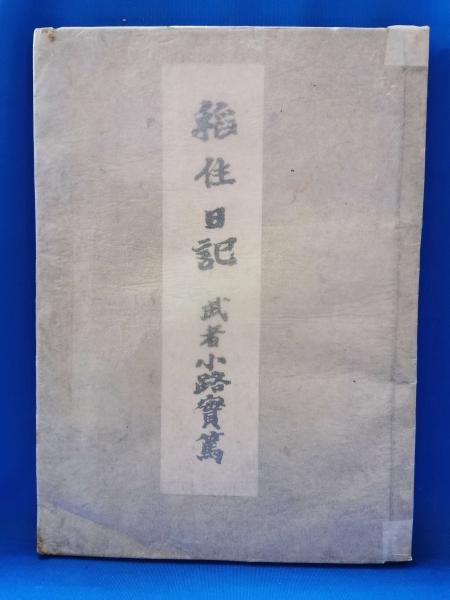 稲住日記 武者小路實篤